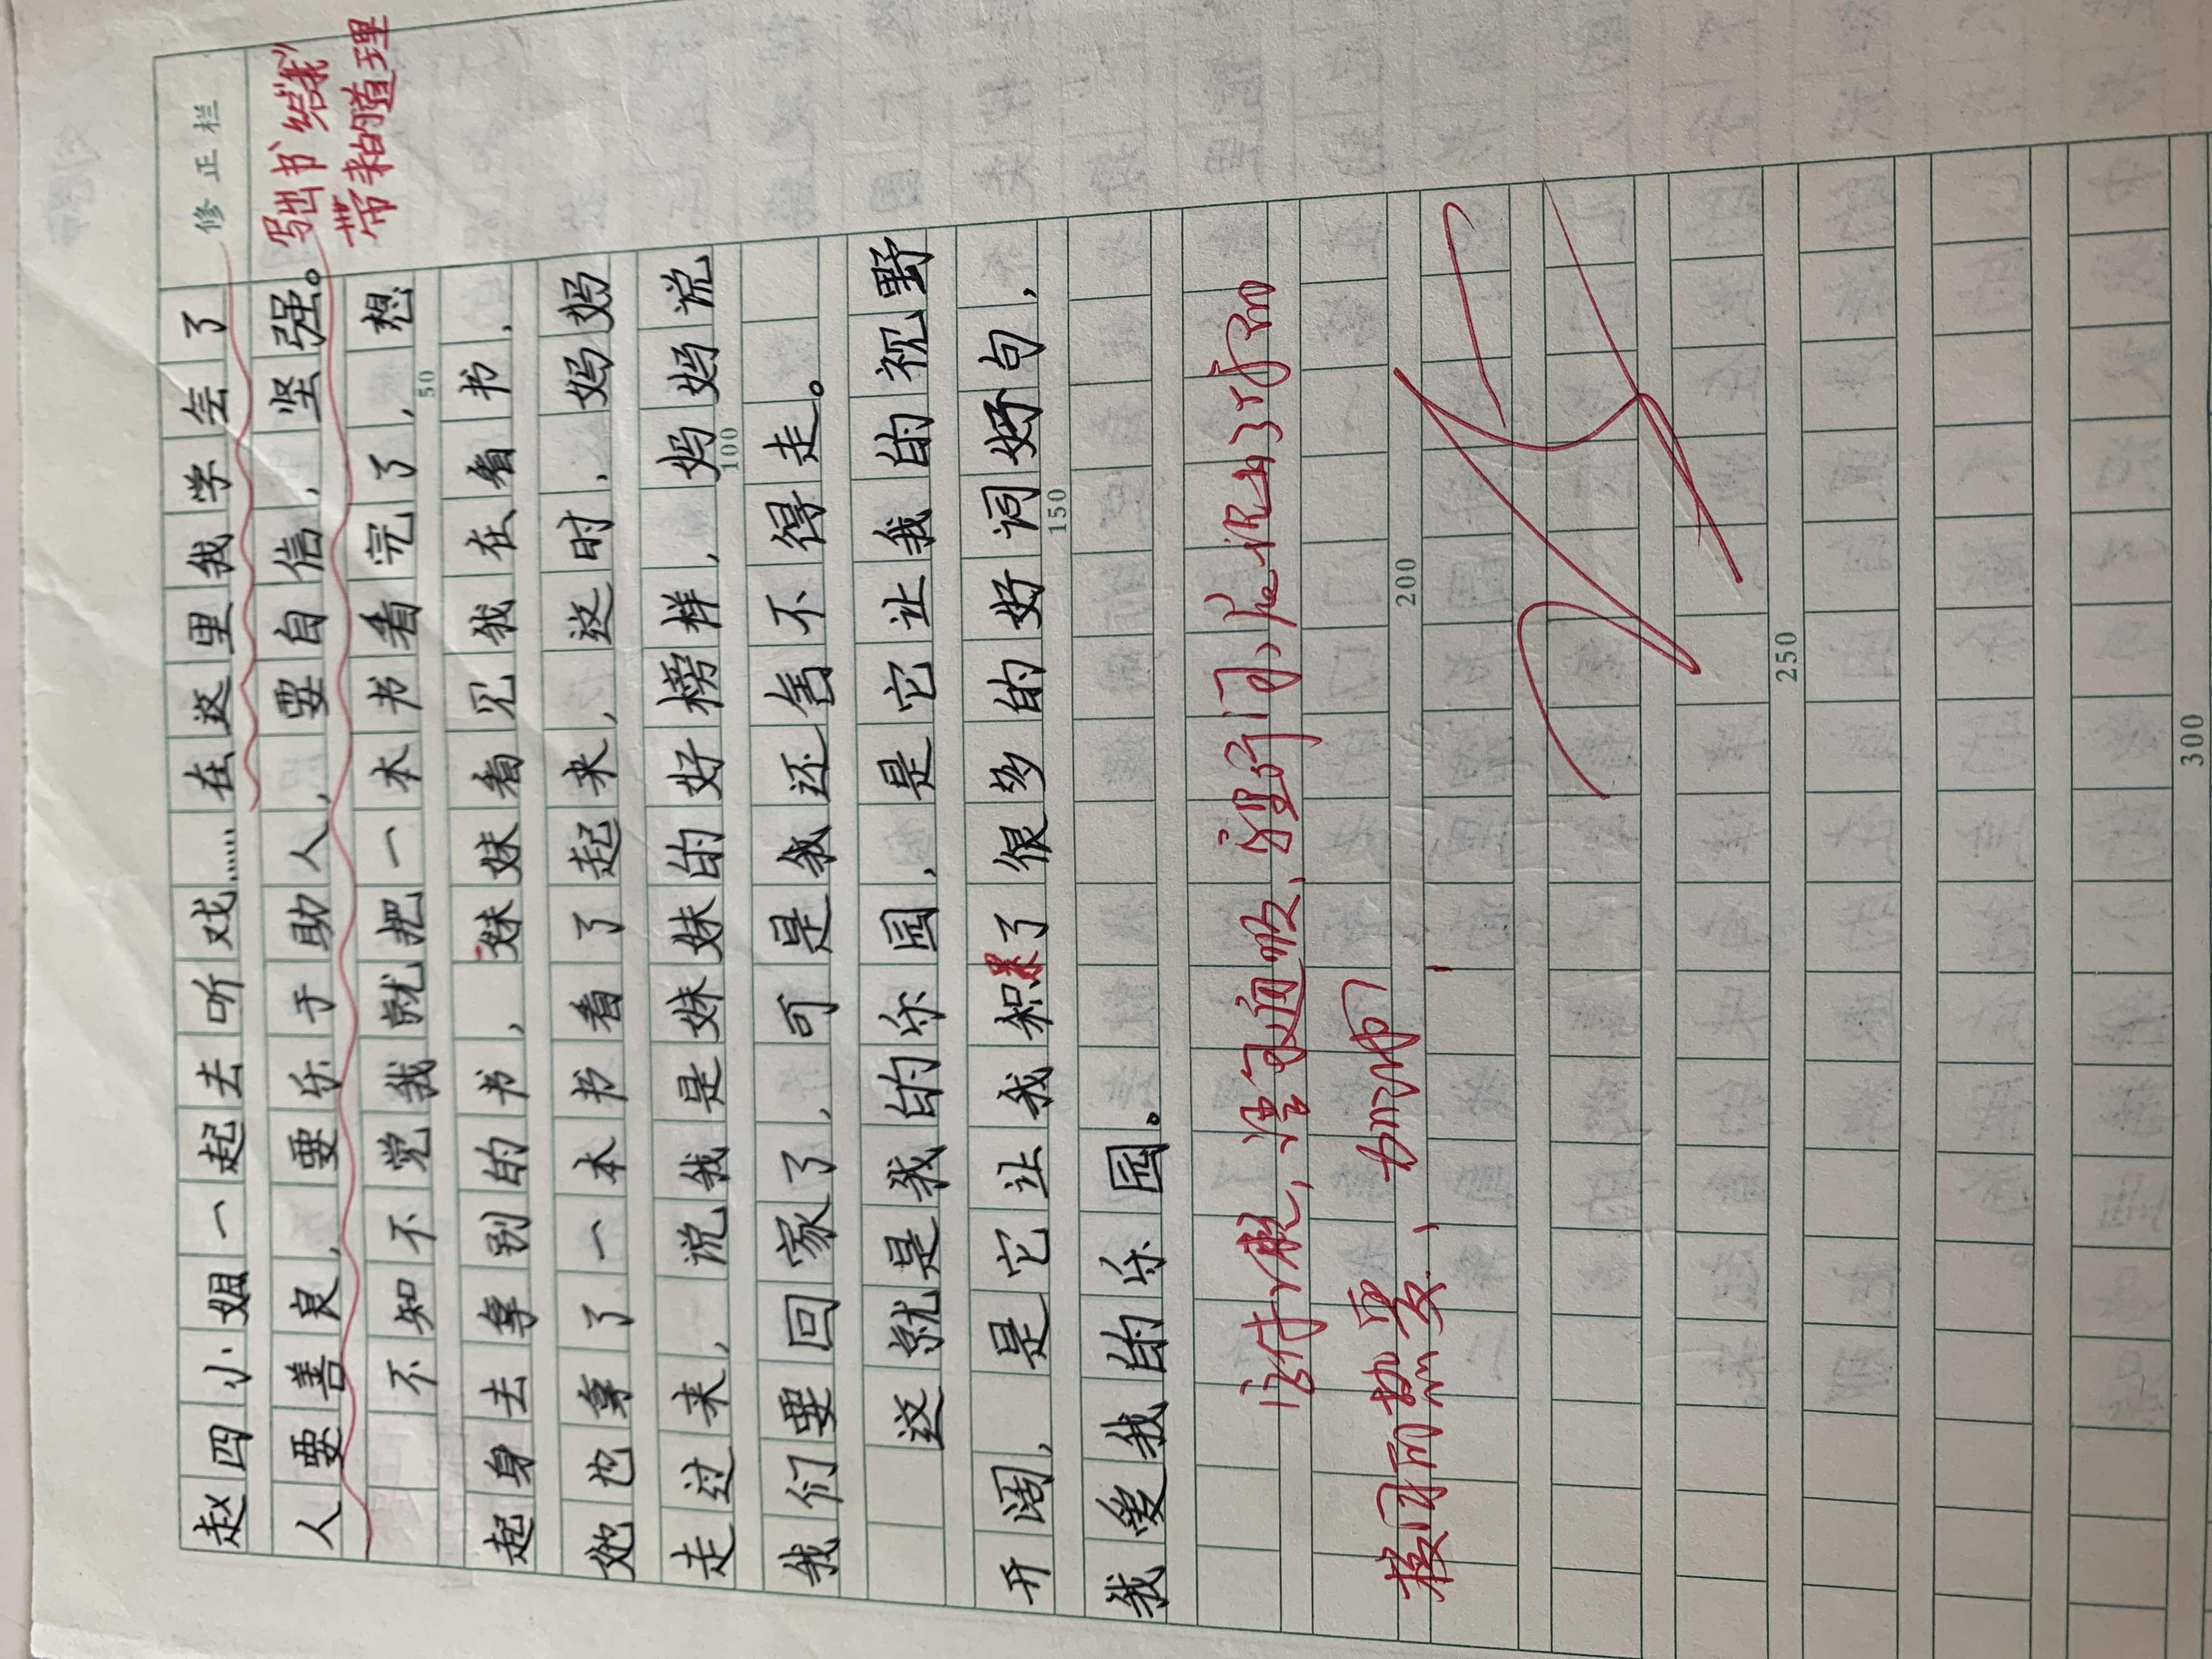 修正栏
赵四小姐一起去听戏……在这里我学会了
写出书给"我"
带来的道理
人要善良,要乐于助人,要自信,坚强。
不知不觉我就把一本书看完了,想
50
起身去拿别的书,妹妹看见我在看书,
她也拿了一本书看了起来,这时,妈妈
走过来,说我是妹妹的好榜样,妈妈说
100
我们要回家了,可是我还舍不得走。
这就是我的乐园,是它让我的视野
开阔,是它让我积累了很多的好词好句,
150
我爱我的乐园。
语句通顺,
200
加油
250
300